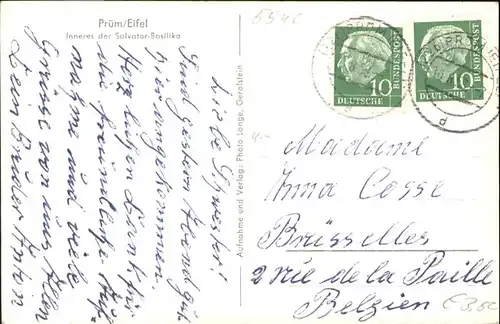 Prüm/Eifel
Inneres der Salvator-Basilika
Liebe Schwester!
Sind gestern Abend gut
hier angekommen.
Herzlichen Dank für
die freundliche Auf=
nahme und viele
Grüsse von uns Allen
Dein Bruder Anton
Aufnahme und Verlag: Photo Lange, Gerolstein
10
DEUTSCHE
BUNDESPOST
10
DEUTSCHE
BUNDESPOST
d
Madame
Irma Cosse
Brüsselles
2 rue de la Paille
Belgien